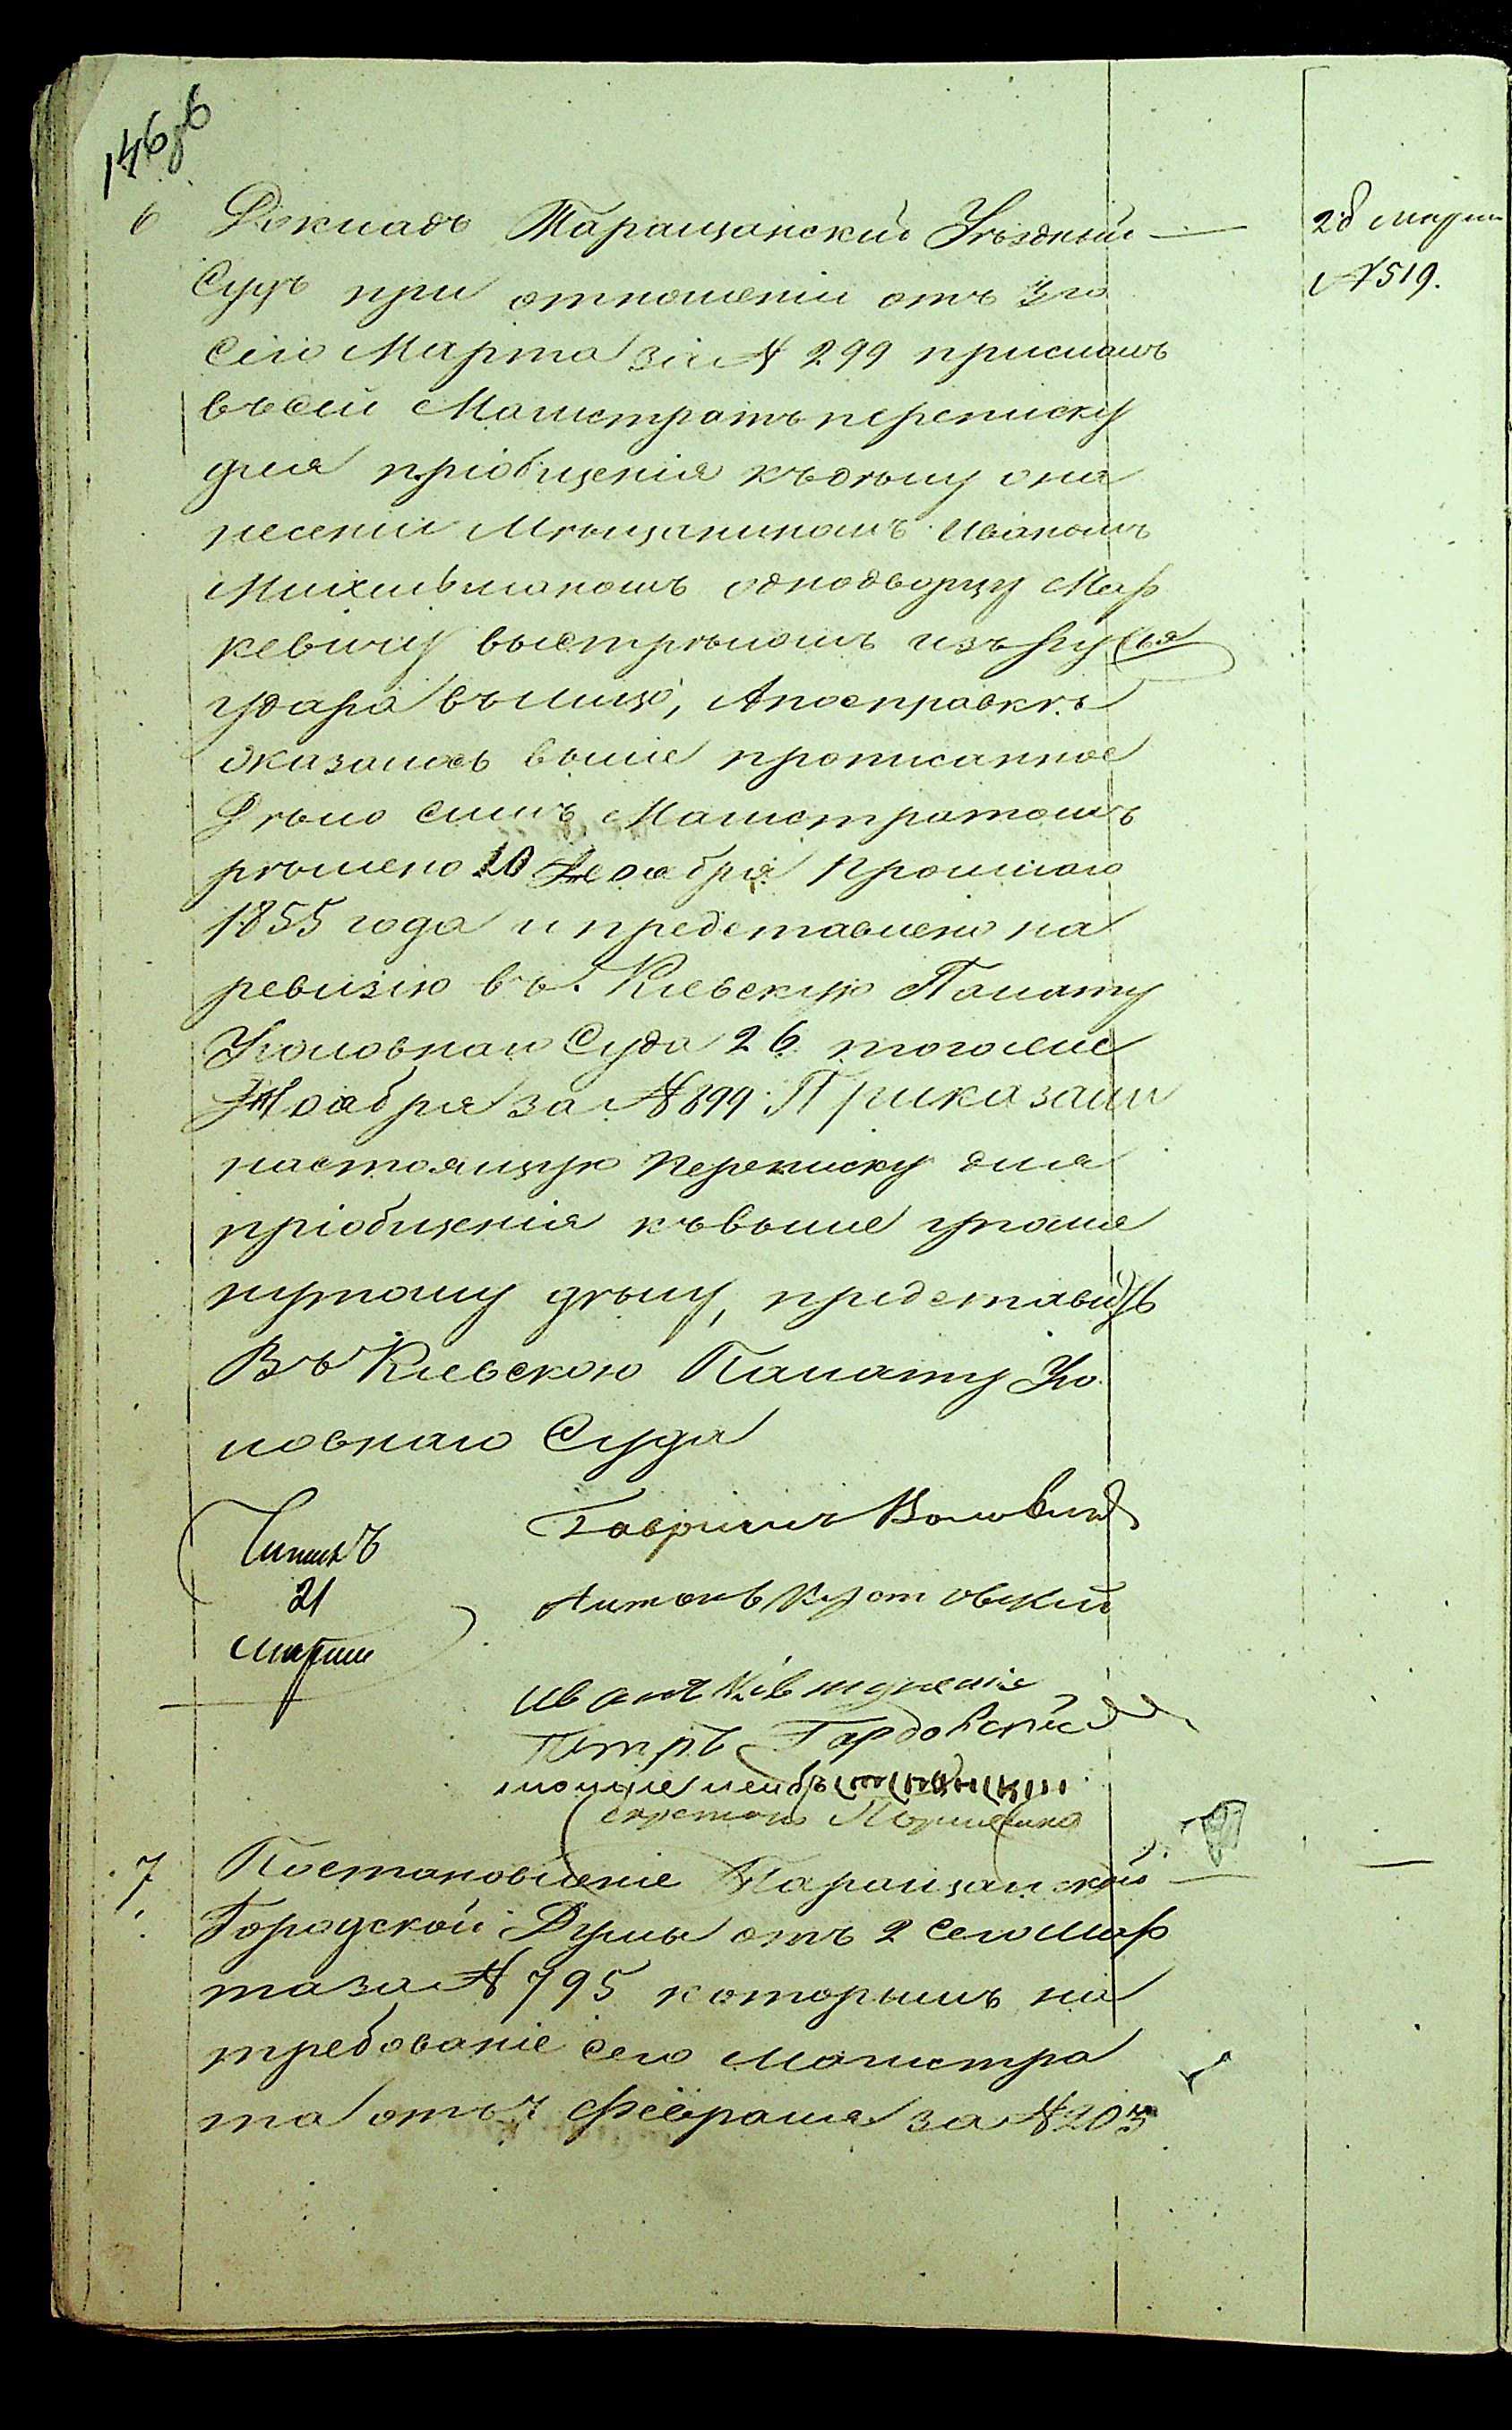 146об
6 Докладъ Таращанскій Уѣздный — 28 марта
Судъ при отношеніи отъ 3го № 519.
сего Марта за № 299 прислалъ
въ сей Магистратъ переписку
для пріобщенія къ дѣлу о на
несеніи Мѣщаниномъ Иваномъ
однодворцу Мар
кевичу выстрѣломъ изъ ружья
удара въ лице, а по справкѣ
оказалось выше прописанное
Дѣло симъ Магистратомъ
рѣшено 10 Ноября прошлаго
1855 года и представлено на
ревизію въ Кіевскую Палату
Уголовнаго Суда 26 того же
Ноября за № 899. Приказали
настоящую переписку для
пріобщенія къ выше упомя
нутому дѣлу, представить
Въ Кіевскою Палату Уго
ловнаго Суда
Гавріилъ
21 Антонъ
марта
Иванъ
Петръ Гардовскій
секретарь
7. Постановленіе Таращанской —
Городской Думы отъ 2 сего Мар
та за № 795 которымъ на
требованіе сего Магистра
та отъ 7 Февраля за № 205